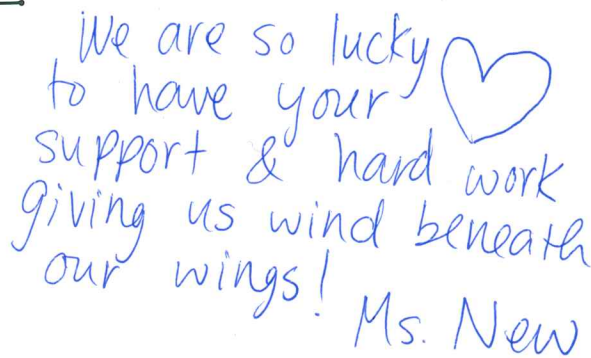 We are so lucky
to have your
support & hard work
giving us wind beneath
our wings!
Ms. New